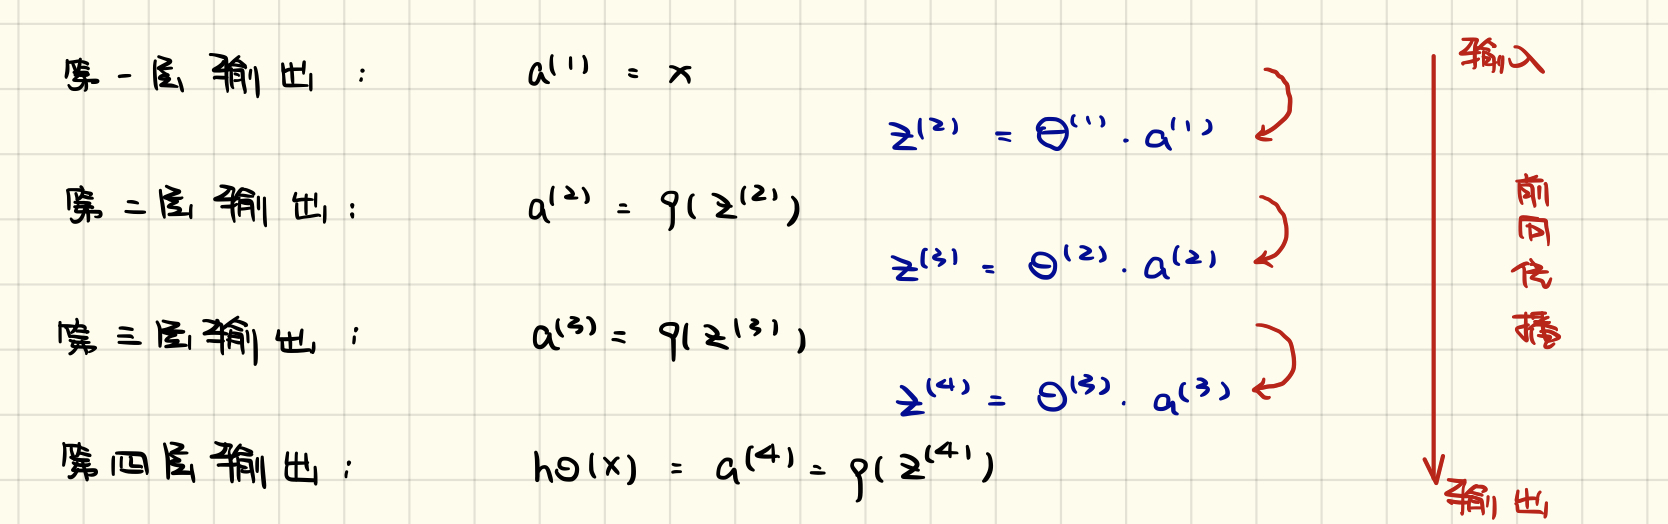 第一层输出： a^(1) = x
输入
z^(2) = Θ^(1) · a^(1)
第二层输出： a^(2) = g(z^(2))
前向传播
z^(3) = Θ^(2) · a^(2)
第三层输出： a^(3) = g(z^(3))
z^(4) = Θ^(3) · a^(3)
第四层输出： hΘ(x) = a^(4) = g(z^(4))
输出